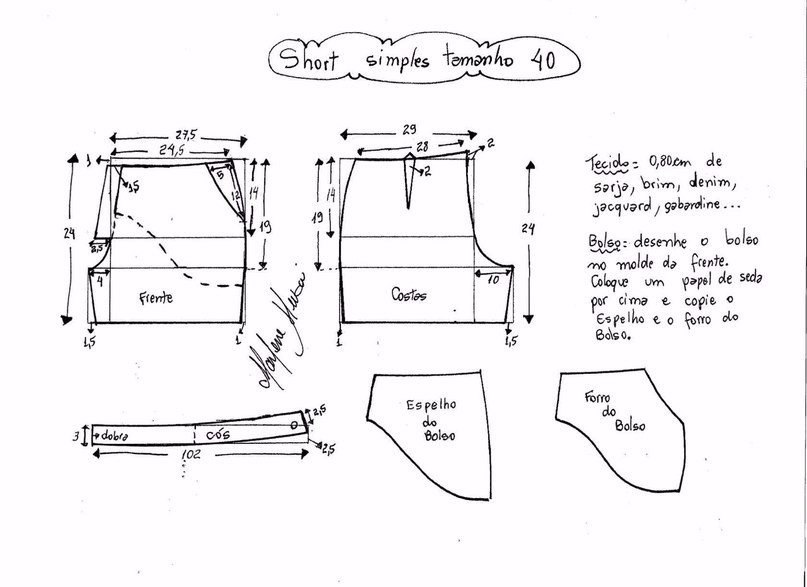 Short simples tamanho 40
27,5
24,5
1
1,5
5
12
14
19
24
2,5
4
Frente
1,5
1
29
28
2
2
14
19
24
Costas
10
1
1,5
Tecido = 0,80cm de
sarja, brim, denim,
jacquard, gabardine...
Bolso = desenhe o bolso
no molde da frente.
Coloque um papel de seda
por cima e copie o
Espelho e o forro do
Bolso.
Marlene Mukai
3
dobra
cós
2,5
2,5
102
Espelho
do
Bolso
Forro
do
Bolso